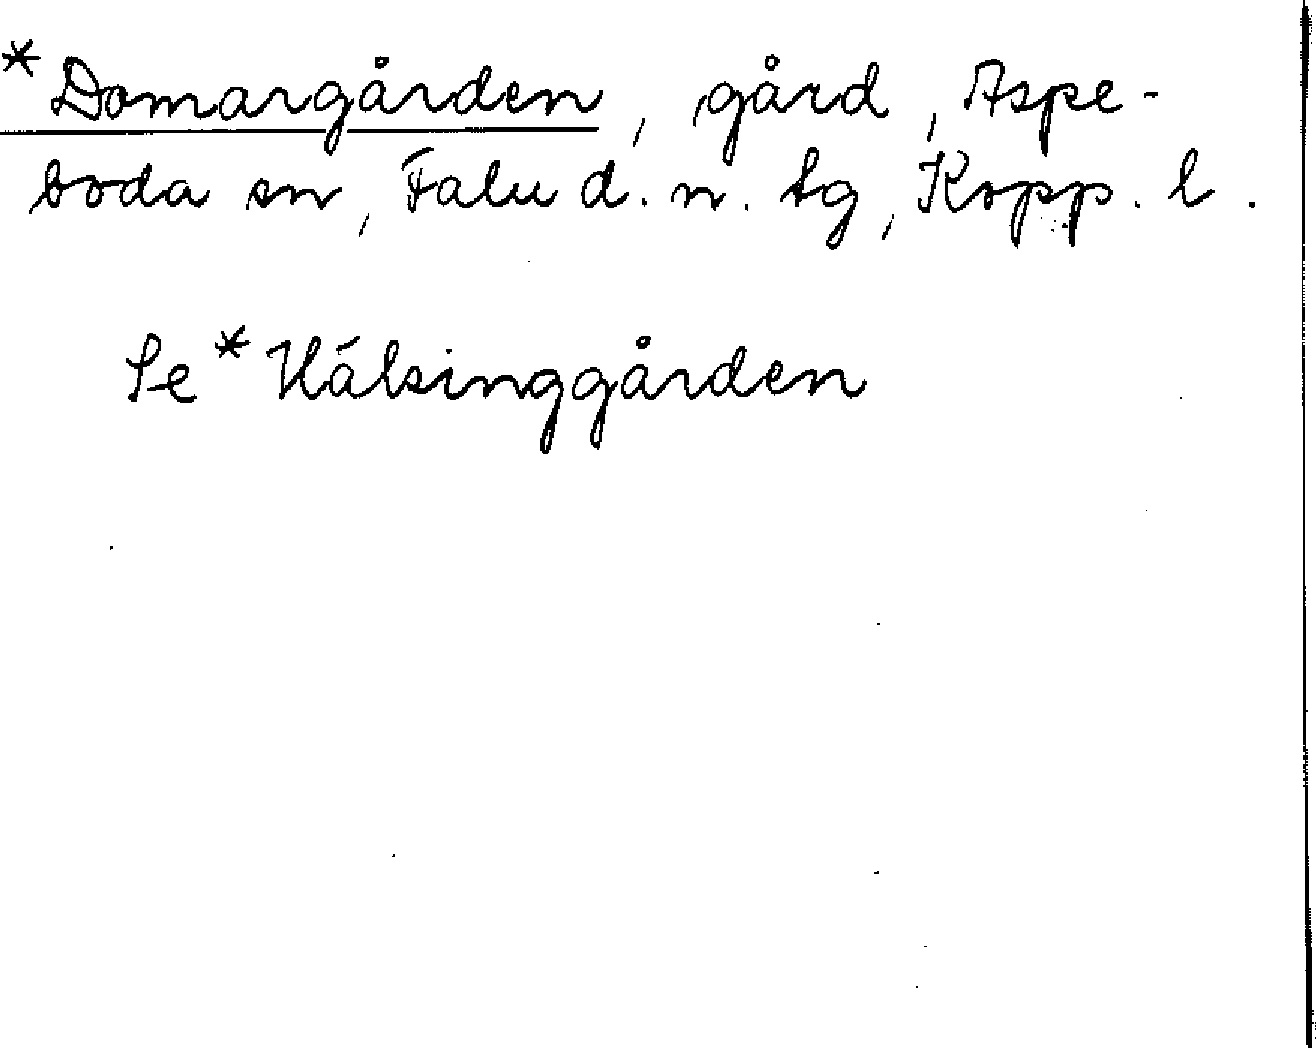 *Domargården, gård, Aspe-
boda sn, Falu d. n. tg, Kopp. l.
Se *Hälsinggården